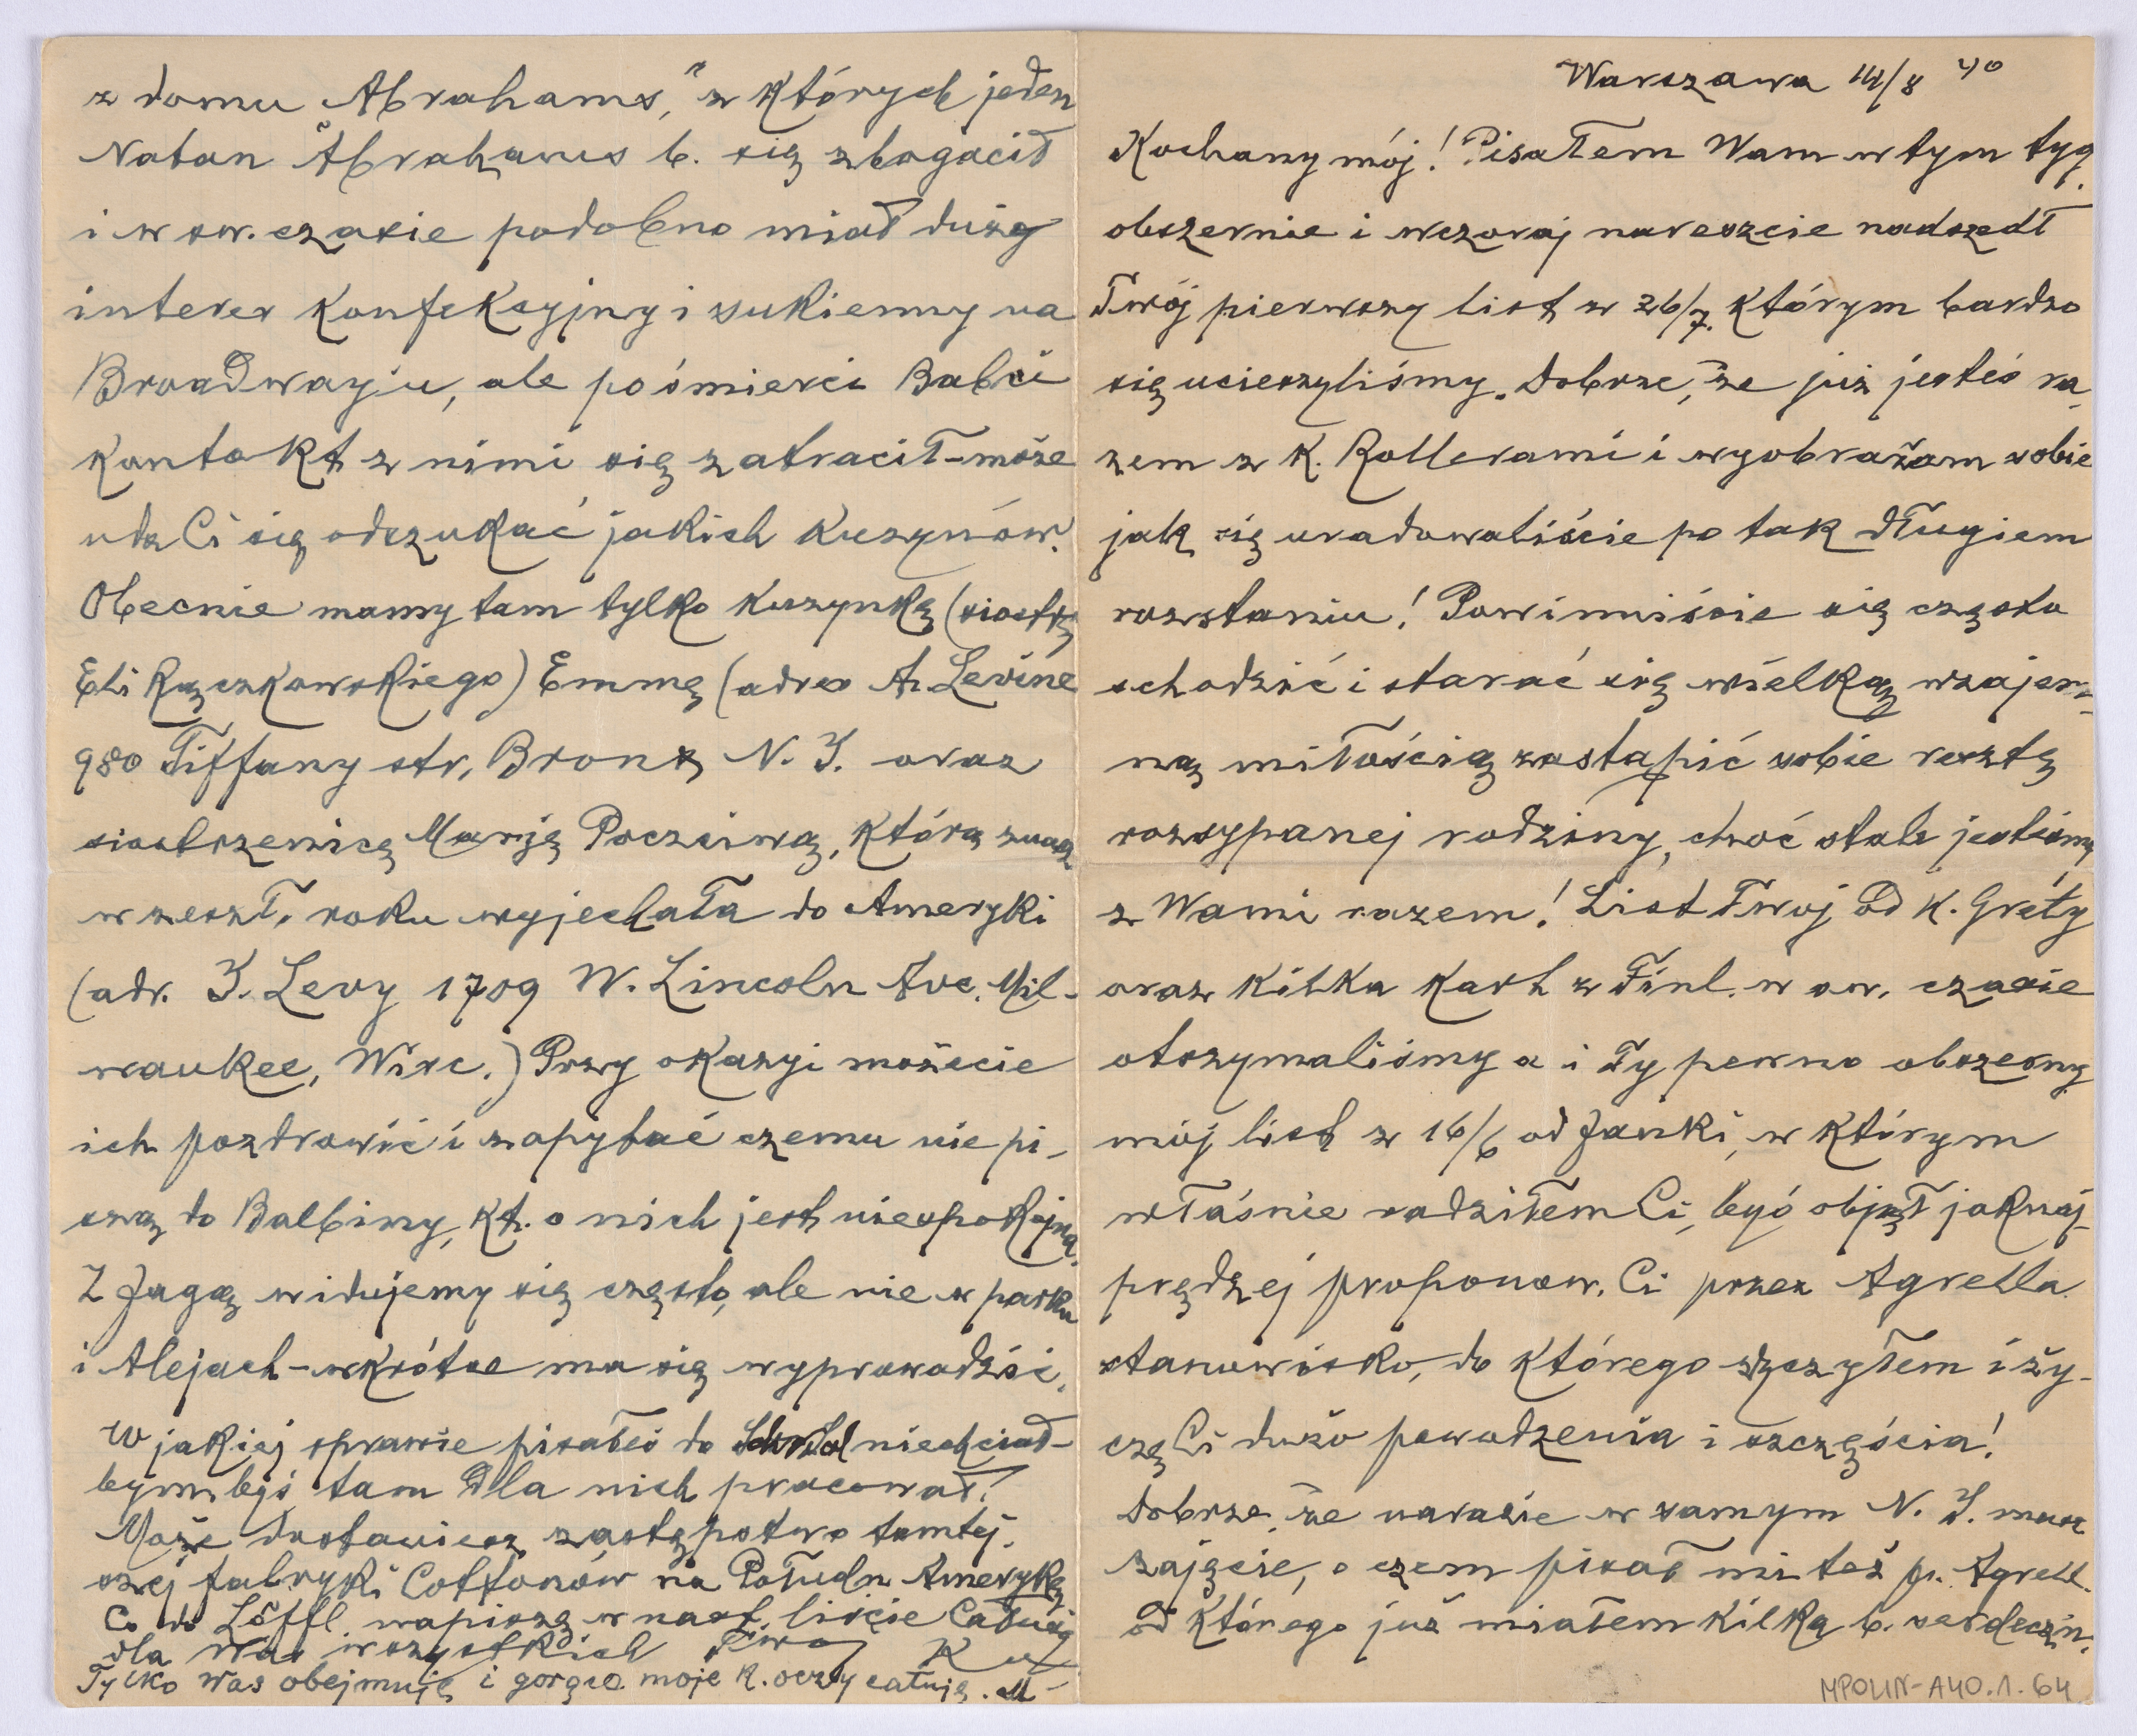 Warszawa 14/8 40
Kochany mój! Pisałem Wam w tym tyg.
obszernie i wczoraj nareszcie nadszedł
Twój pierwszy list z 26/7. którym bardzo
się ucieszyliśmy. Dobrze, że już jesteś ra-
zem z K. Rollerami i wyobrażam sobie
jak się uradowaliście po tak długiem
rozstaniu! Powinniście się często
schodzić i starać się wielką wzajem-
ną miłością zastąpić sobie resztę
rozsypanej rodziny, choć stale jesteśmy
z Wami razem! List Twój od K. Grety
oraz kilka kart z Finl. w sw. czasie
otrzymaliśmy a i Ty pewno obszerny
mój list z 16/6 od Janki, w którym
właśnie radziłem Ci, byś objął jaknaj-
prędzej proponow. Ci przez Agrella
stanowisko, do którego życzyłem i ży-
czę Ci dużo powodzenia i szczęścia!
Dobrze, że narazie w samym N. Y. masz
zajęcie, o czem pisał mi też p. Agrell.
od którego już miałem kilka b. serdeczn.
z domu Abrahams," z których jeden
Natan Abrahams b. się zbogacił
i w sw. czasie podobno miał duży
interes konfekcyjny i sukienny na
Broadwayju, ale po śmierci Babci
kontakt z nimi się zatracił - może
uda Ci się odszukać jakich kuzynów.
Obecnie mamy tam tylko kuzynkę (siostrę
Eli Rączkowskiego) Emmę (adres A. Levine
980 Tiffany str. Bronx N. Y. oraz
siostrzenicę Marję Poczciwą, którą znasz
w zeszł. roku wyjechała do Ameryki
(adr. J. Levy 1709 W. Lincoln Ave. Mil-
waukee, Wisc.) Przy okazyi możecie
ich pozdrowić i zapytać czemu nie pi-
szą do Balbiny, kt. o nich jest niespokojna.
Z Jagą widujemy się często, ale nie w parku
i Alejach - wkrótce ma się wyprowadzić.
W jakiej sprawie pisałeś do niechciał-
bym byś tam dla nich pracował!
Może dostaniesz zastępstwo tamtej-
szej fabryki Cottonów na Połudn. Amerykę
Co do Löffl. napiszę w nast. liście Całusy
dla Was wszystkich
Tylko Was obejmuję i gorąco moje K. oczy całuję. M
MPOLIN-A40.1.64